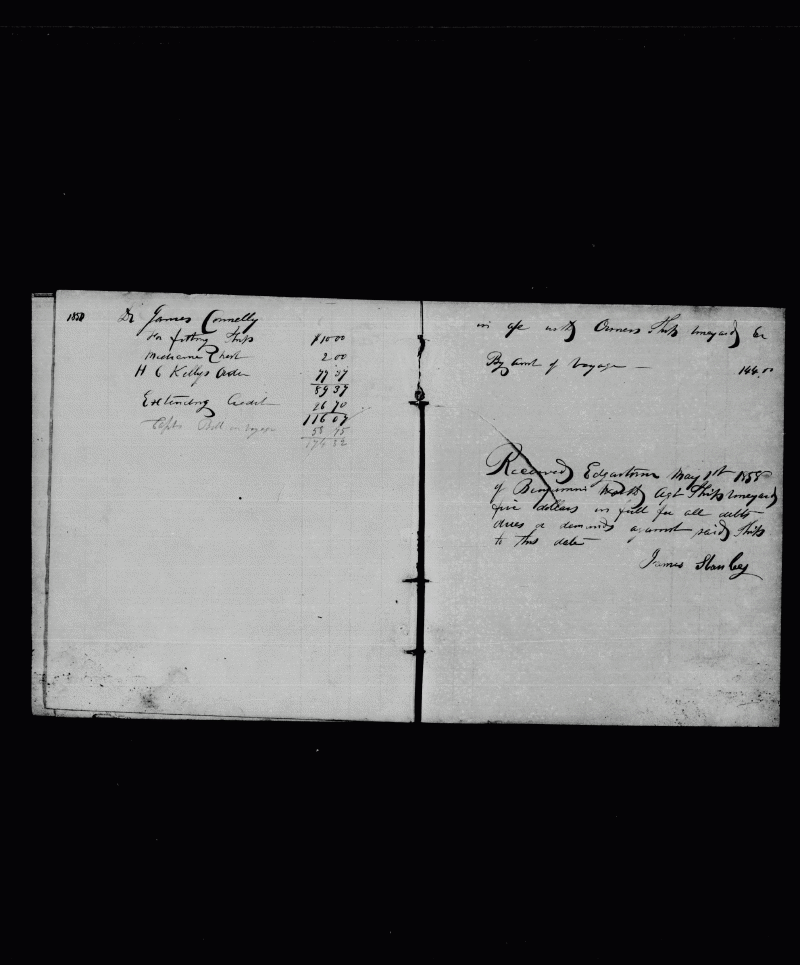 1858 Dr James Connelly
For fitting Ship $10 00
Medicine Chest 2 00
H C Kellys Order 77 37
89 37
Extending Credit 26 70
116 07
Capts Bill on voyage 58 75
174 82
in a/c with Owners Ship Vineyard Cr
By amt of Voyage — 144.00
Received Edgartown May 1st 1858
of Benjamin Worth Agt Ship Vineyard
five dollars in full for all debts
dues or demands against said Ship
to this date
James Stanley